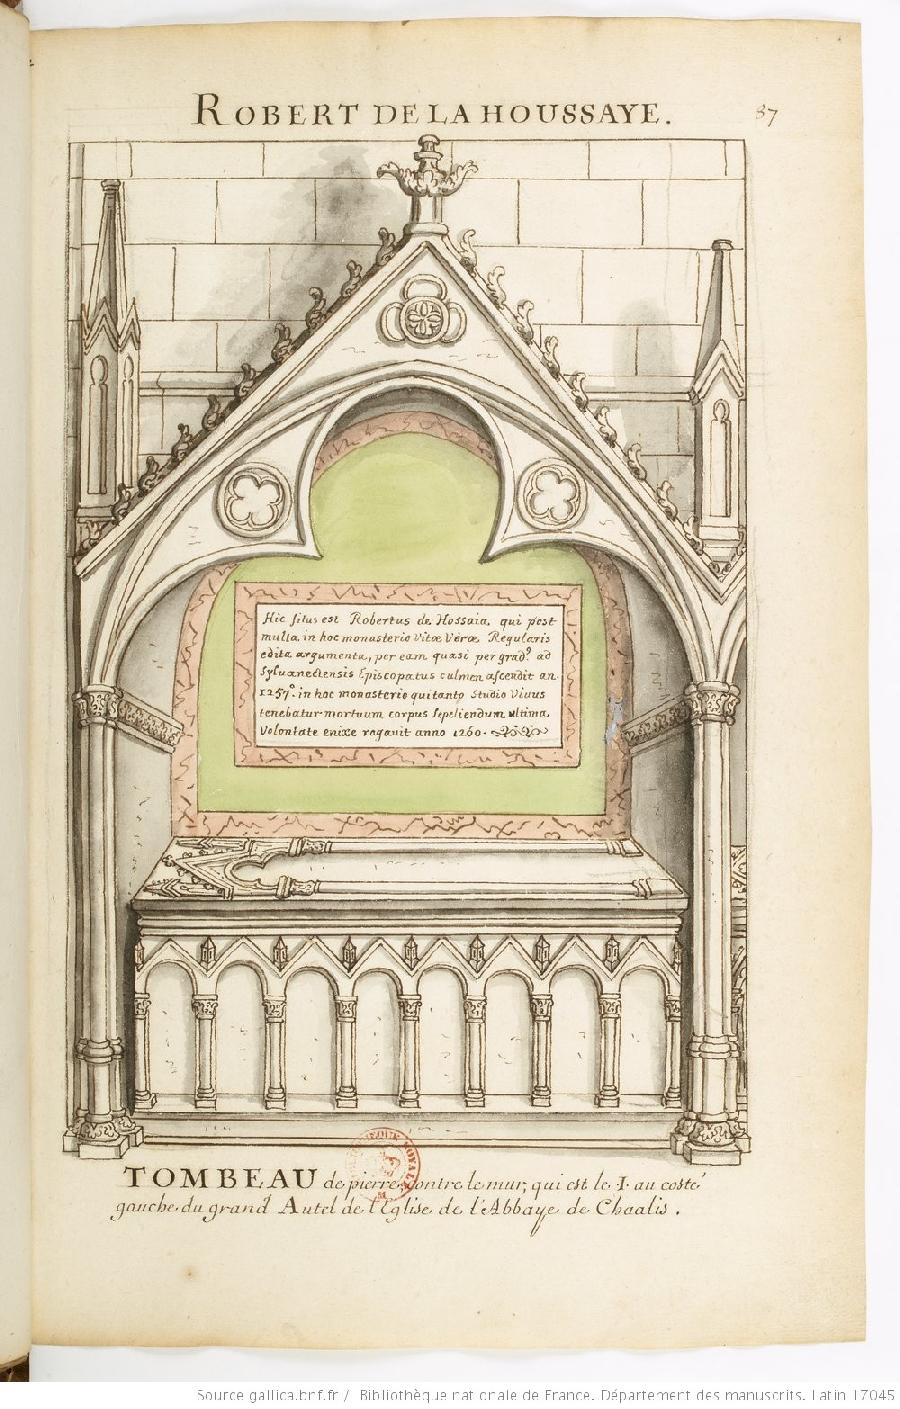 ROBERT DE LA HOUSSAYE.
87
Hic situs est Robertus de Hossaia, qui post
multa in hoc monasterio Vitæ Veræ Regularis
edita argumenta, per eam quasi per grad? ad
Syluanectensis Episcopatus culmen ascendit an
1257º. in hoc monasterio qui tanto Studio Vivus
tenebatur mortuum corpus sepeliendum ultima
Volontate enixe rogavit anno 1260.
TOMBEAU de pierre contre le mur, qui est le I. au costé
gauche du grand Autel de l'Eglise de l'Abbaye de Chaalis.
Source gallica.bnf.fr / Bibliothèque nationale de France. Département des manuscrits. Latin 17045